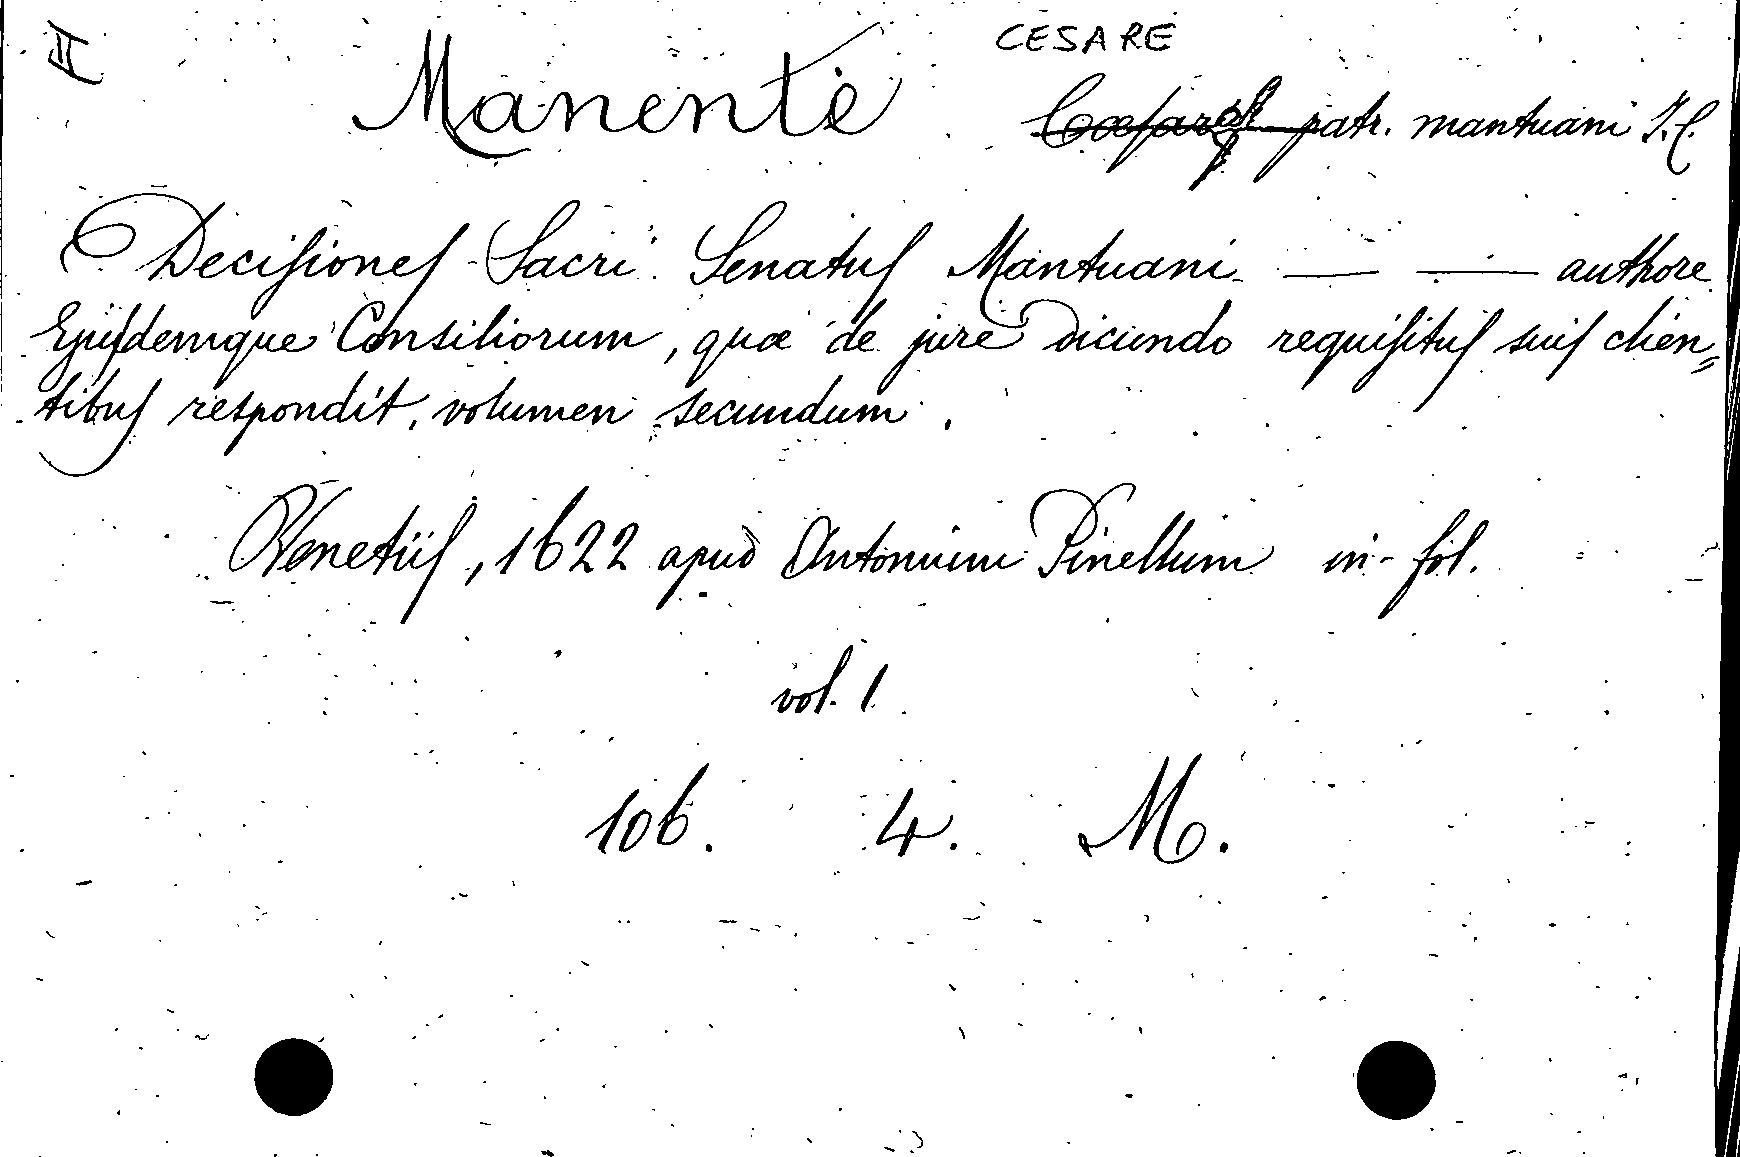 II
CESARE
Manente Cæsare patr. mantuani J.C.
Decisiones Sacri Senatus Mantuani — — authore
Ejusdemque Consiliorum, quæ de jure dicundo requisitus suis clien„
tibus respondit, volumen secundum.
Venetiis, 1622 apud Antonium Pinellum in-fol.
vol. 1
106. 4. M.